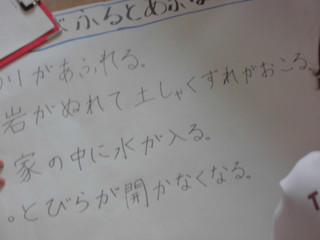 ふるとあふ
りがあふれる。
岩がぬれて土しゃくずれがおこる
家の中に水が入る。
とびらが開かなくなる。
T